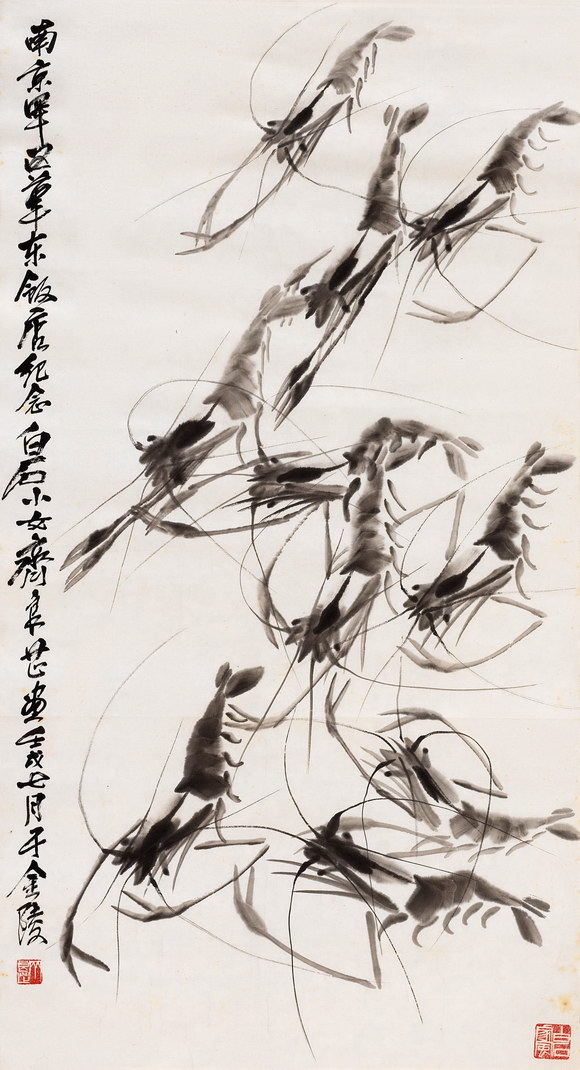 南京军区華东飯店纪念白石小女齊良芷画壬戌七月于金陵